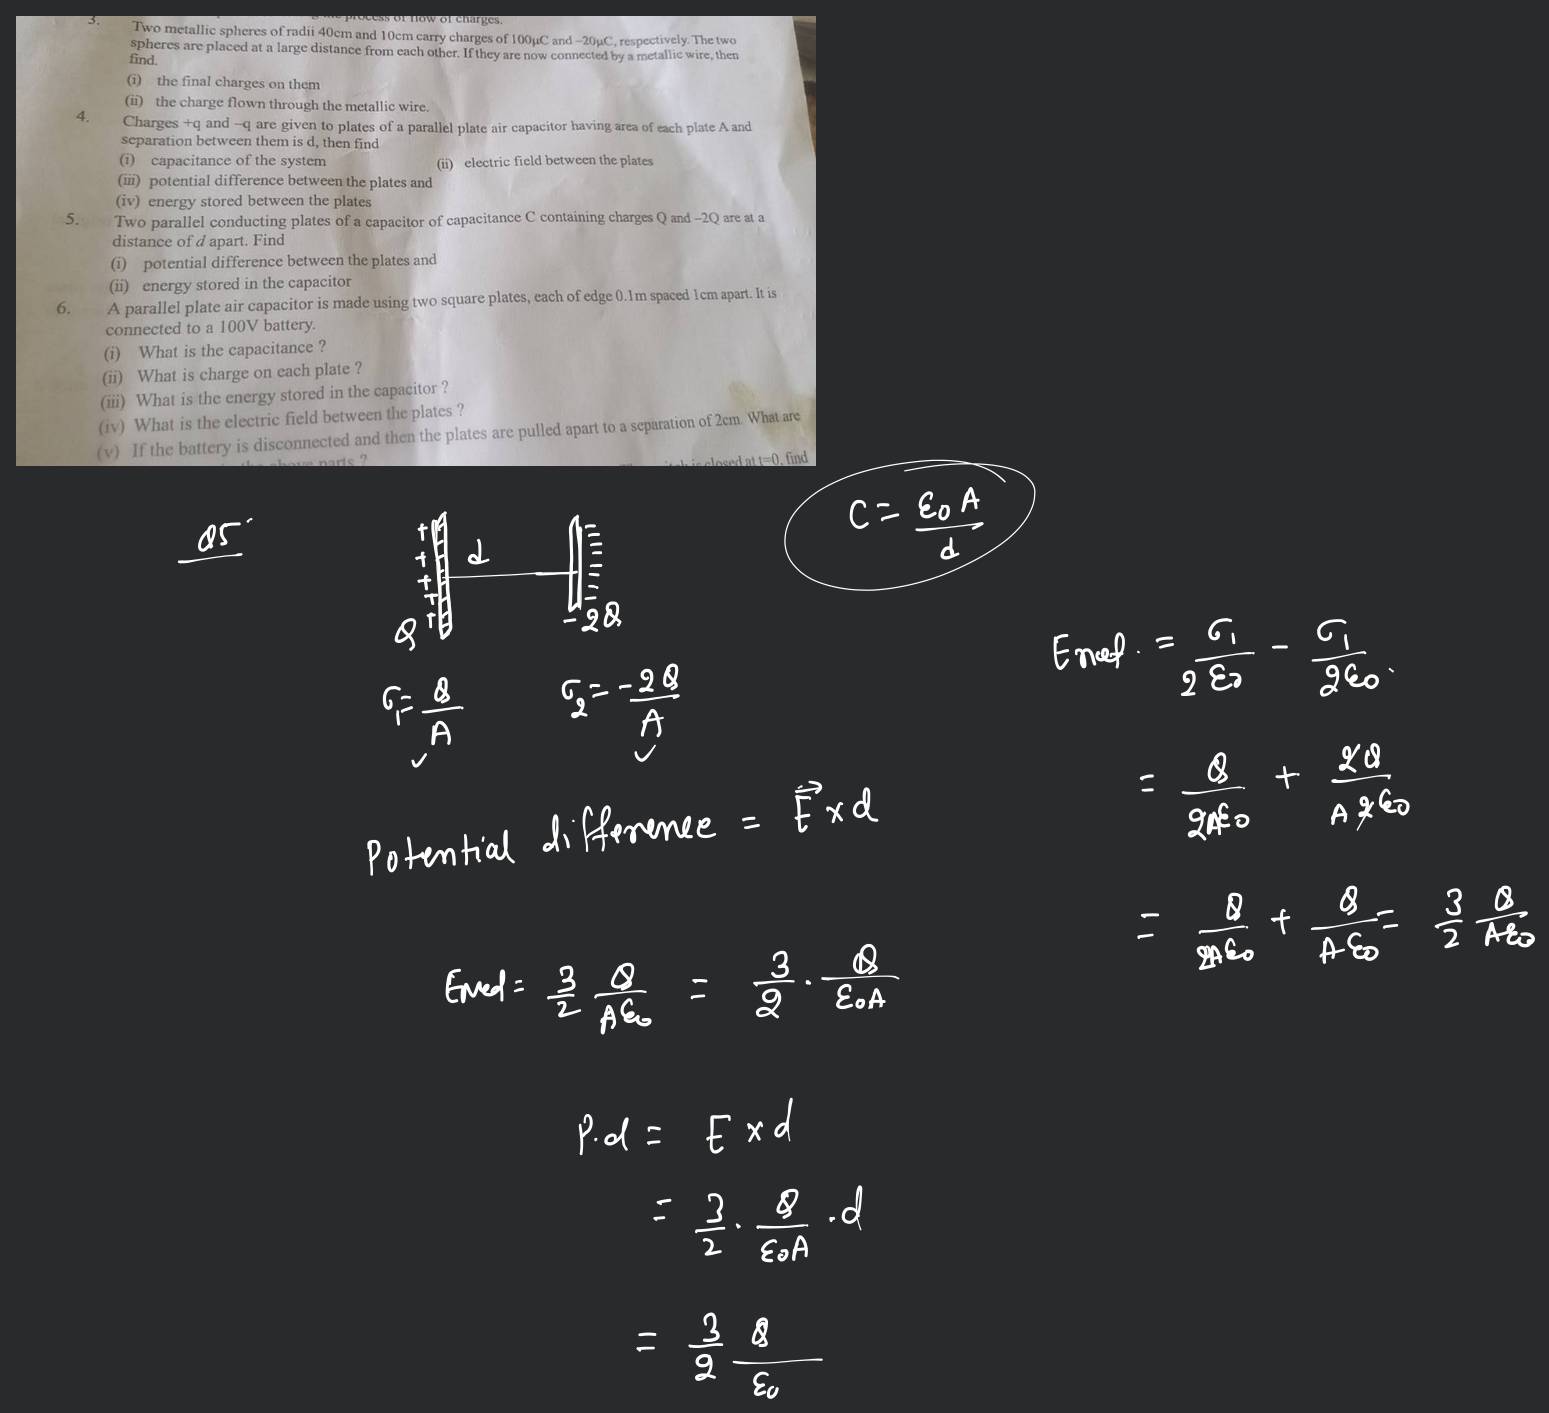 3. process of flow of charges.
Two metallic spheres of radii 40cm and 10cm carry charges of 100μC and –20μC, respectively. The two
spheres are placed at a large distance from each other. If they are now connected by a metallic wire, then
find.
(i) the final charges on them
(ii) the charge flown through the metallic wire.
4. Charges +q and –q are given to plates of a parallel plate air capacitor having area of each plate A and
separation between them is d, then find
(i) capacitance of the system (ii) electric field between the plates
(iii) potential difference between the plates and
(iv) energy stored between the plates
5. Two parallel conducting plates of a capacitor of capacitance C containing charges Q and –2Q are at a
distance of d apart. Find
(i) potential difference between the plates and
(ii) energy stored in the capacitor
6. A parallel plate air capacitor is made using two square plates, each of edge 0.1m spaced 1cm apart. It is
connected to a 100V battery.
(i) What is the capacitance ?
(ii) What is charge on each plate ?
(iii) What is the energy stored in the capacitor ?
(iv) What is the electric field between the plates ?
(v) If the battery is disconnected and then the plates are pulled apart to a separation of 2cm. What are
the above parts ? is closed at t=0, find
Q5
+ + + + + d
Q -2Q
C = ε₀A/d
σ₁ = Q/A σ₂ = -2Q/A
✓ ✓
Enet. = σ₁/2ε₀ - σ₁/2ε₀.
= Q/2Aε₀ + 2Q/A2ε₀
= Q/2Aε₀ + Q/Aε₀ = 3/2 Q/Aε₀
Potential difference = E⃗ x d
Ened = 3/2 Q/Aε₀ = 3/2 . Q/ε₀A
P.d = E x d
= 3/2 . Q/ε₀A . d
= 3/2 Q/ε₀